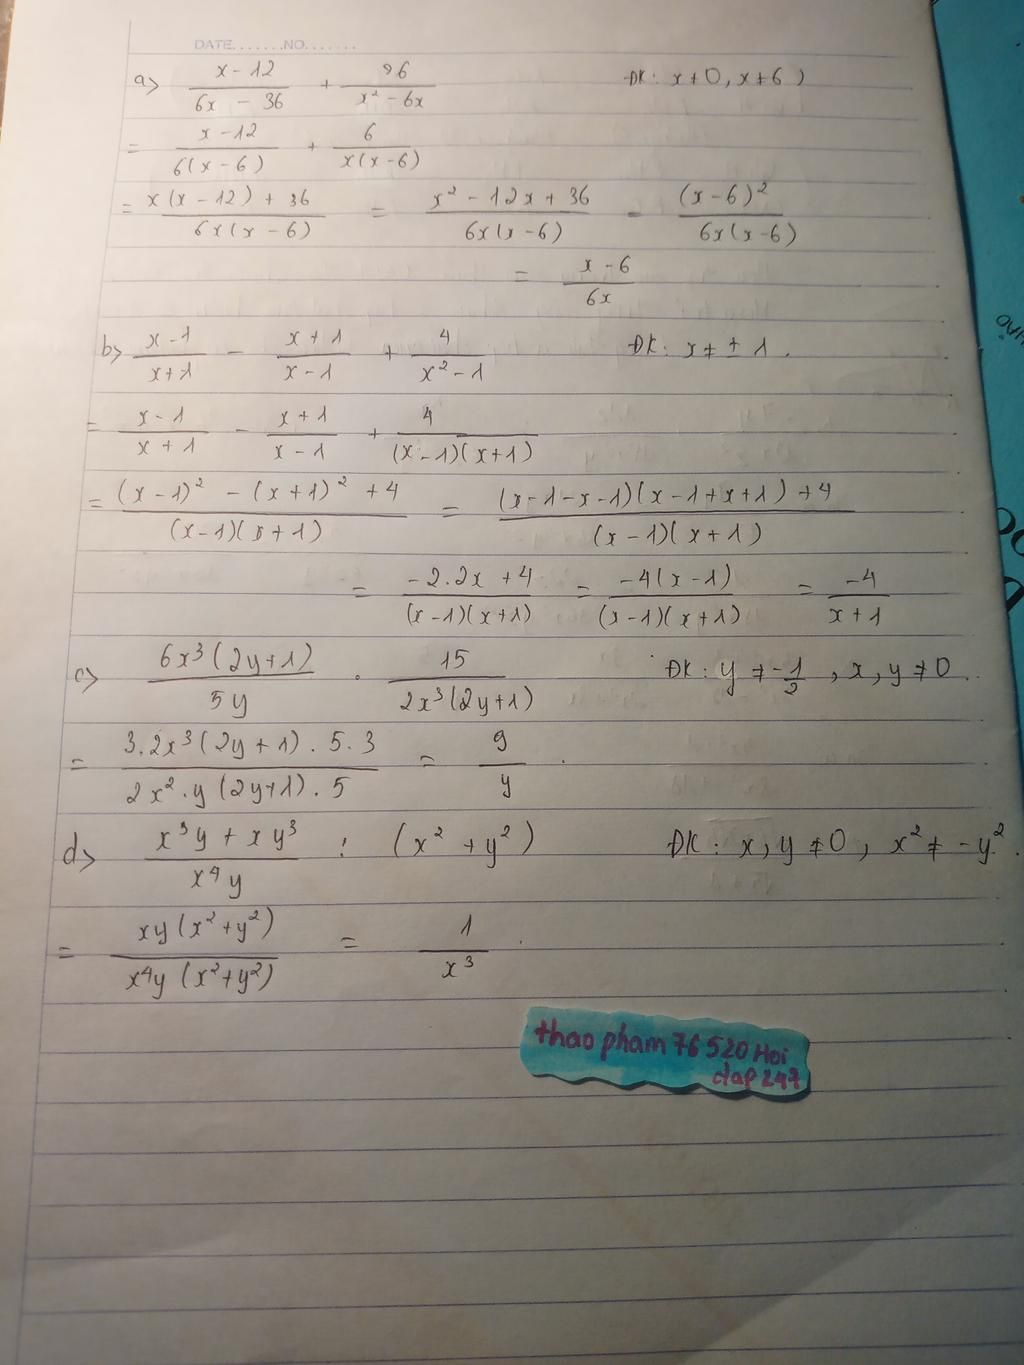 DATE.......NO.......
a> (x-12)/(6x - 36) + 96/(x² - 6x) ĐK: x≠0, x≠6)
= (x-12)/(6(x-6)) + 6/(x(x-6))
= (x(x-12)+36)/(6x(x-6)) = (x² - 12x + 36)/(6x(x-6)) = (x-6)²/(6x(x-6))
= (x-6)/(6x)
b> (x-1)/(x+1) - (x+1)/(x-1) + 4/(x²-1) ĐK: x≠±1.
= (x-1)/(x+1) - (x+1)/(x-1) + 4/((x-1)(x+1))
= ((x-1)² - (x+1)² + 4)/((x-1)(x+1)) = ((x-1-x-1)(x-1+x+1)+4)/((x-1)(x+1))
= (-2.2x+4)/((x-1)(x+1)) = (-4(x-1))/((x-1)(x+1)) = (-4)/(x+1)
c> (6x³(2y+1))/(5y) . 15/(2x³(2y+1)) ĐK: y≠-1/2, x,y≠0.
= (3.2x³(2y+1).5.3)/(2x².y(2y+1).5) = 9/y.
d> (x³y + xy³)/(x⁴y) : (x² + y²) ĐK: x,y≠0, x²≠-y².
= (xy(x²+y²))/(x⁴y(x²+y²)) = 1/x³.
thao pham 76 520 Hoi
dap 247